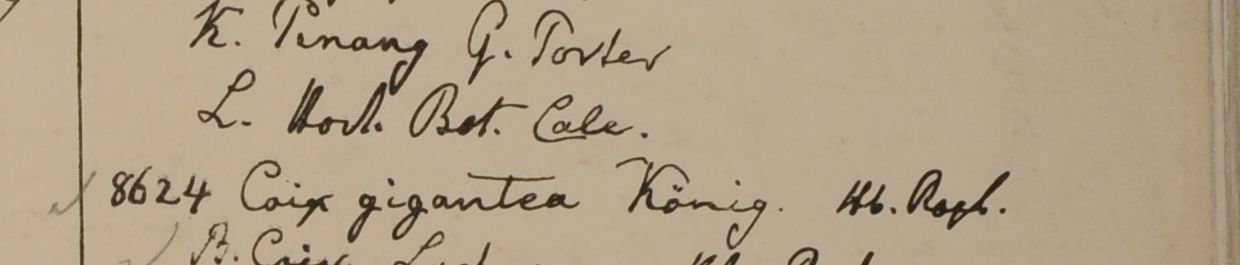 K. Pinang G. Porter
L. Hort. Bot. Calc.
8624 Coix gigantea König. Hb. Roxb.
B. Coix